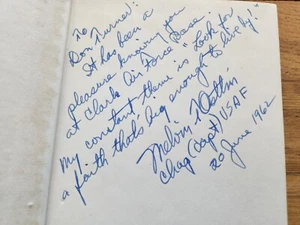 To
Don Turner:
It has been a
pleasure knowing you
at Clark Air Force Base
My constant theme is "Look for
a faith that's big enough to live by!"
Melvin
Chap (Capt) USAF
20 June 1962